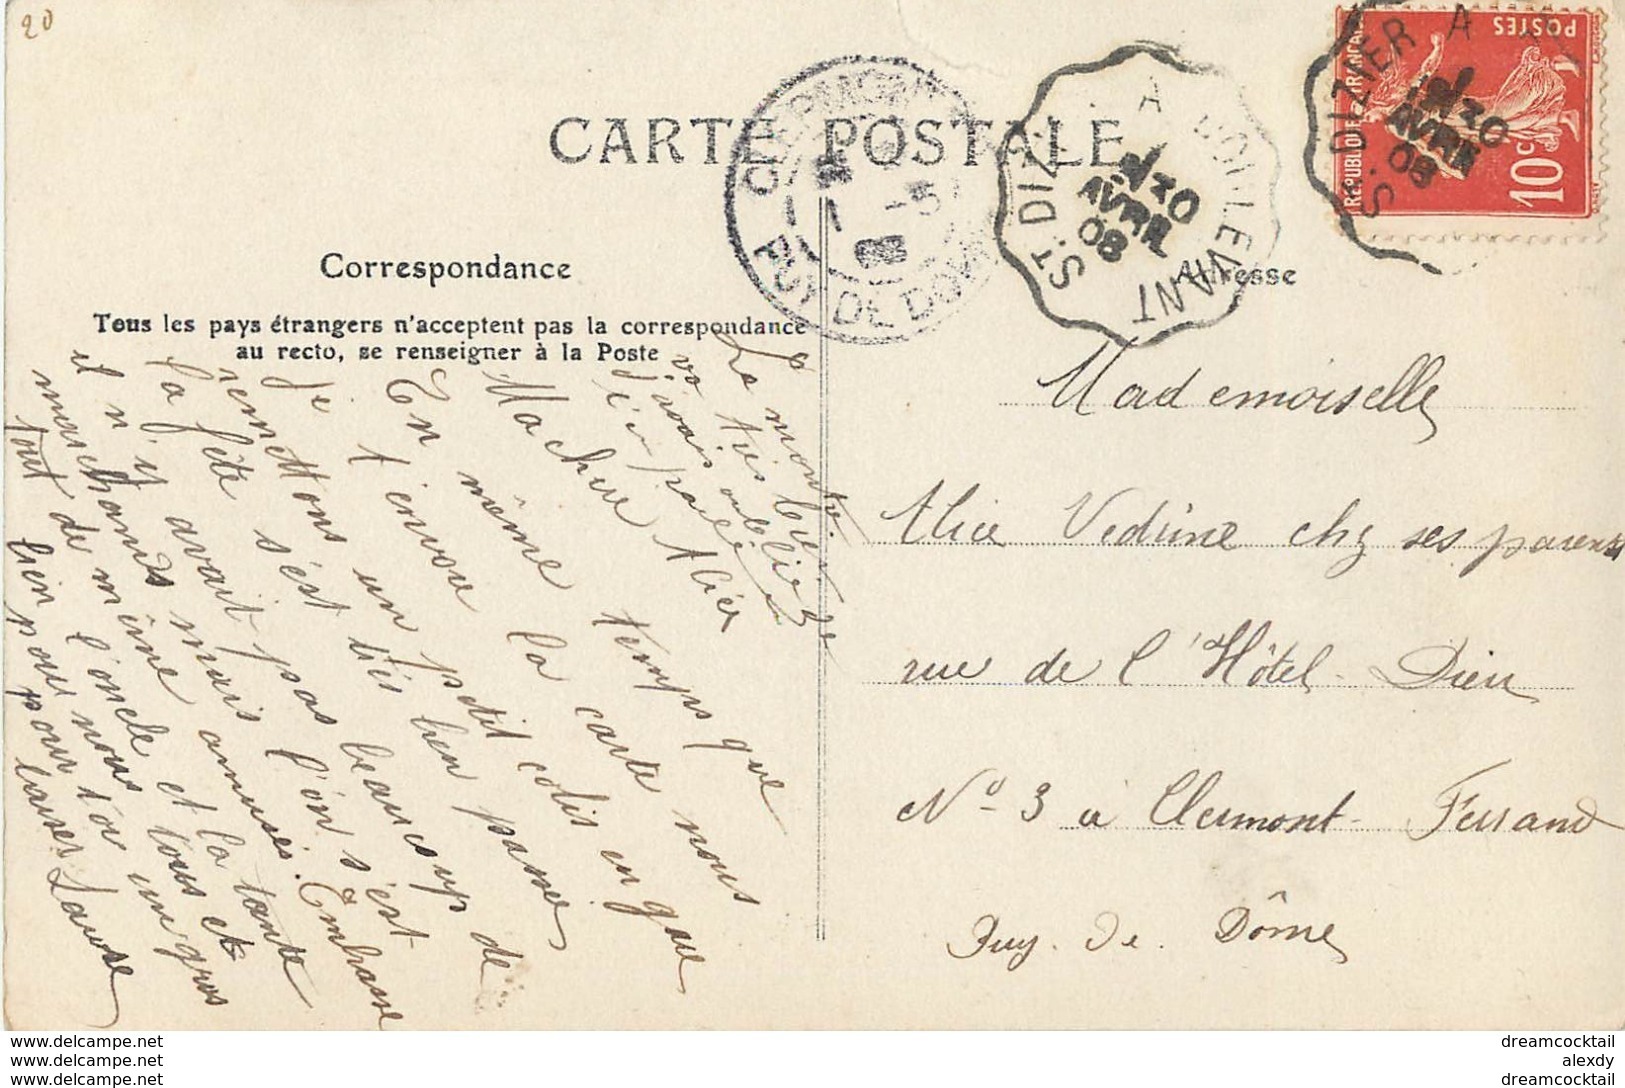 20
CARTE POSTALE
Correspondance
Tous les pays étrangers n'acceptent pas la correspondance
au recto, se renseigner à la Poste
Adresse
REPUBLIQUE FRANÇAISE
POSTES
10 c
ST DIZIER A
30
AVRIL
08
ST DIZIER A DOULEVANT
30
AVRIL
08
CLERMONT
PUY DE DOME
La montre
très bien
j'avais oublié
Ma chère Alice
En même temps que
je t'envoie la carte nous
remettons un petit colis en gare
la fête s'est très bien passée
il n'y avait pas beaucoup de
marchands mais l'on s'est
tout de même amusé. Embrasse
bien l'oncle et la tante
pour nous tous et
pour toi un gros
baiser Laure
Mademoiselle
Alice Vedrine chez ses parents
rue de l'Hôtel-Dieu
No 3 à Clermont-Ferrand
Puy-de-Dôme
www.delcampe.net
www.delcampe.net
www.delcampe.net
dreamcocktail
alexdy
dreamcocktail